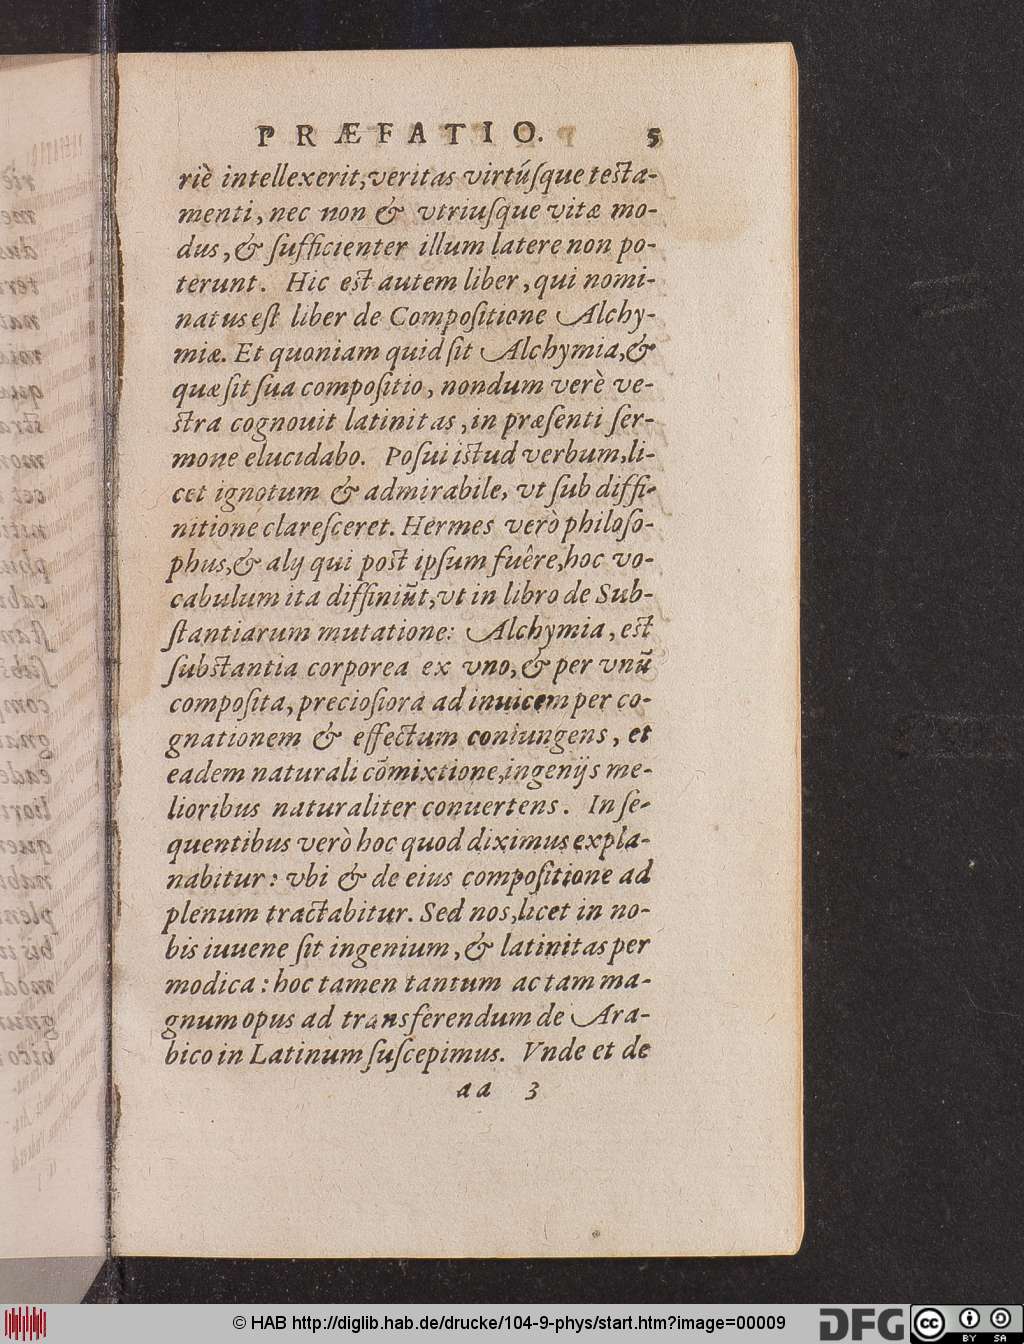 PRÆFATIO. 5
riè intellexerit, veritas virtúſque teſta-
menti, nec non & vtriuſque vitæ mo-
dus, & ſufficienter illum latere non po-
terunt. Hic eſt autem liber, qui nomi-
natus eſt liber de Compoſitione Alchy-
miæ. Et quoniam quid ſit Alchymia, &
quæ ſit ſua compoſitio, nondum verè ve-
ſtra cognouit latinitas, in præſenti ſer-
mone elucidabo. Poſui iſtud verbum, li-
cet ignotum & admirabile, vt ſub diffi-
nitione clareſceret. Hermes verò philoſo-
phus, & alij qui poſt ipſum fuêre, hoc vo-
cabulum ita diffiniũt, vt in libro de Sub-
ſtantiarum mutatione: Alchymia, eſt
ſubſtantia corporea ex vno, & per vnũ
compoſita, precioſiora ad inuicem per co-
gnationem & effectum coniungens, et
eadem naturali cõmixtione, ingenijs me-
lioribus naturaliter conuertens. In ſe-
quentibus verò hoc quod diximus expla-
nabitur: vbi & de eius compoſitione ad
plenum tractabitur. Sed nos, licet in no-
bis iuuene ſit ingenium, & latinitas per
modica: hoc tamen tantum ac tam ma-
gnum opus ad transferendum de Ara-
bico in Latinum ſuſcepimus. Vnde et de
aa 3
© HAB http://diglib.hab.de/drucke/104-9-phys/start.htm?image=00009
DFG
cc BY SA